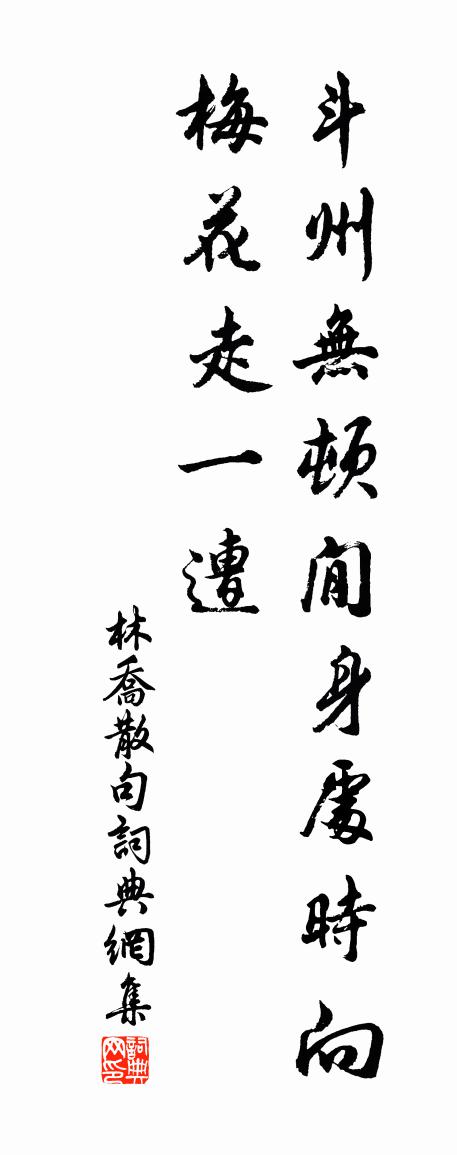 斗州無頓閒身處時向
梅花走一遭
林喬散句詞典網集
詞典网印